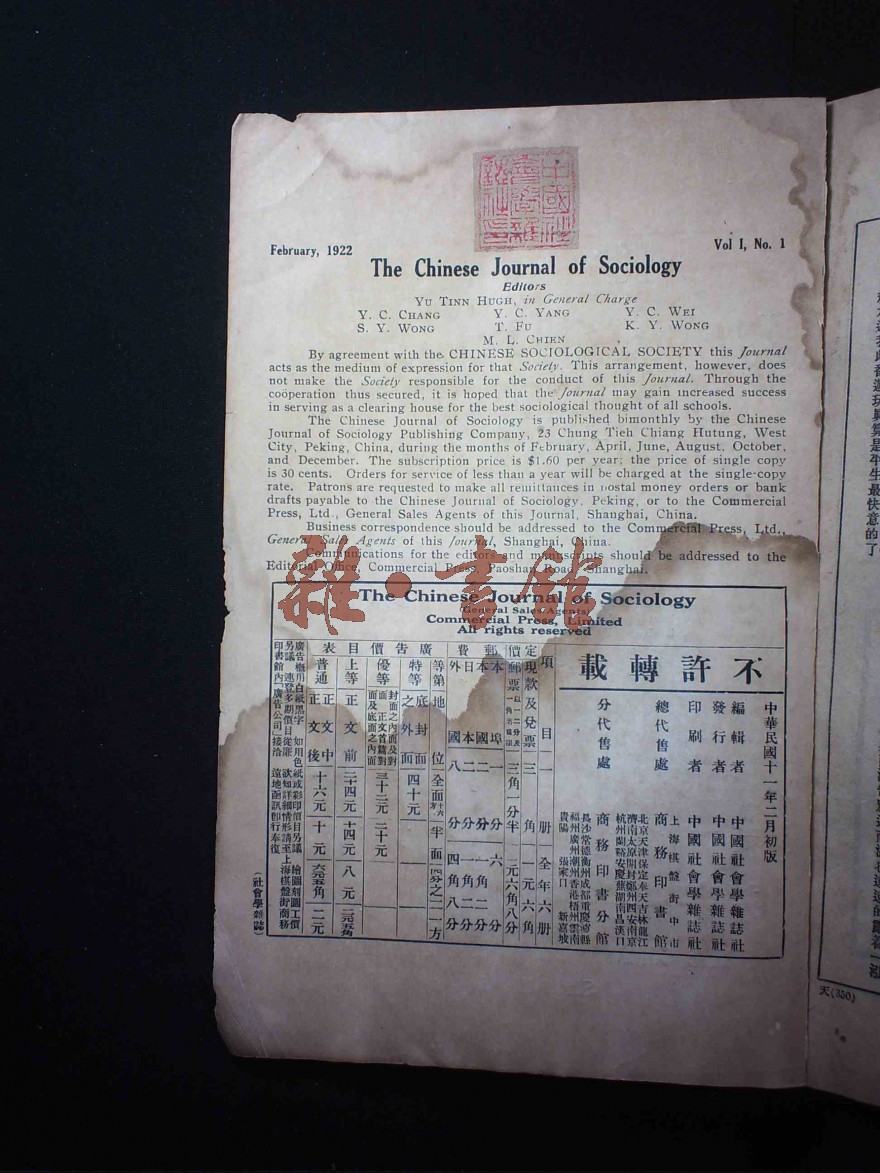 中國社會學雜誌社印
February, 1922
Vol I, No. 1
The Chinese Journal of Sociology
Editors
YU TINN HUGH, in General Charge
Y. C. CHANG Y. C. YANG Y. C. WEI
S. Y. WONG T. FU K. Y. WONG
M. L. CHIEN
By agreement with the CHINESE SOCIOLOGICAL SOCIETY this Journal
acts as the medium of expression for that Society. This arrangement, however, does
not make the Society responsible for the conduct of this Journal. Through the
coöperation thus secured, it is hoped that the Journal may gain increased success
in serving as a clearing house for the best sociological thought of all schools.
The Chinese Journal of Sociology is published bimonthly by the Chinese
Journal of Sociology Publishing Company, 23 Chung Tieh Chiang Hutung, West
City, Peking, China, during the months of February, April, June, August, October,
and December. The subscription price is $1.60 per year; the price of single copy
is 30 cents. Orders for service of less than a year will be charged at the single-copy
rate. Patrons are requested to make all remittances in postal money orders or bank
drafts payable to the Chinese Journal of Sociology, Peking, or to the Commercial
Press, Ltd., General Sales Agents of this Journal, Shanghai, China.
Business correspondence should be addressed to the Commercial Press, Ltd.,
General Sales Agents of this Journal, Shanghai, China.
Communications for the editors and manuscripts should be addressed to the
Editorial Office, Commercial Press, Paoshan Road, Shanghai.
雜·書館
The Chinese Journal of Sociology
General Sales Agents
Commercial Press, Limited
All rights reserved
不許轉載
中華民國十一年二月初版
編輯者 中國社會學雜誌社
發行者 中國社會學雜誌社
印刷者 中國社會學雜誌社
總代售處 上海棋盤街中市 商務印書館
分代售處 商務印書分館
北京天津保定奉天吉林龍江
濟南太原開封鄭州西安南京
杭州蘭谿安慶蕪湖南昌漢口
長沙常德衡州成都重慶
福州廣州潮州香港梧州雲南
貴陽 張家口 新嘉坡
項目 一册 全年六册
定價 現款及兌票 三角 一元六角
郵票 三角一分半 一元六角八分
郵費 本埠 一分 六分
本國 二分 一角二分
日本 二分 一角二分
外國 八分 四角八分
廣告價目表
等第 地位 全面 半面 四分之一
特等 底封面之外面 四十元
優等 封面之內面及對面 正文首篇對面及底面之內面 三十二元 二十元
上等 正文前 二十四元 十四元 八元
普通 正文中 正文後 十六元 十元
廣告概用白紙黑字 如用色紙或彩印價目另議 繪圖刻圖工價
另議 連登多期價目從廉 欲知詳細情形請至上海棋盤街商務
印書館內「廣告公司」接洽 遠地函訊即行奉復
(社會學雜誌)
天(350)